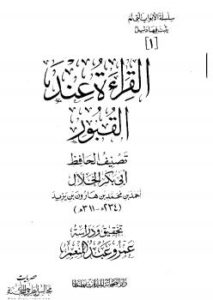 سلسلة الأبواب التي لم
يثبت فيها دليل
[١]
القراءة عند
القبور
تصنيف الحافظ
أبي بكر الخلال
أحمد بن محمد بن هارون بن يزيد
(٢٣٤ - ٣١١ هـ)
تحقيق ودراسة
عمرو عبد المنعم